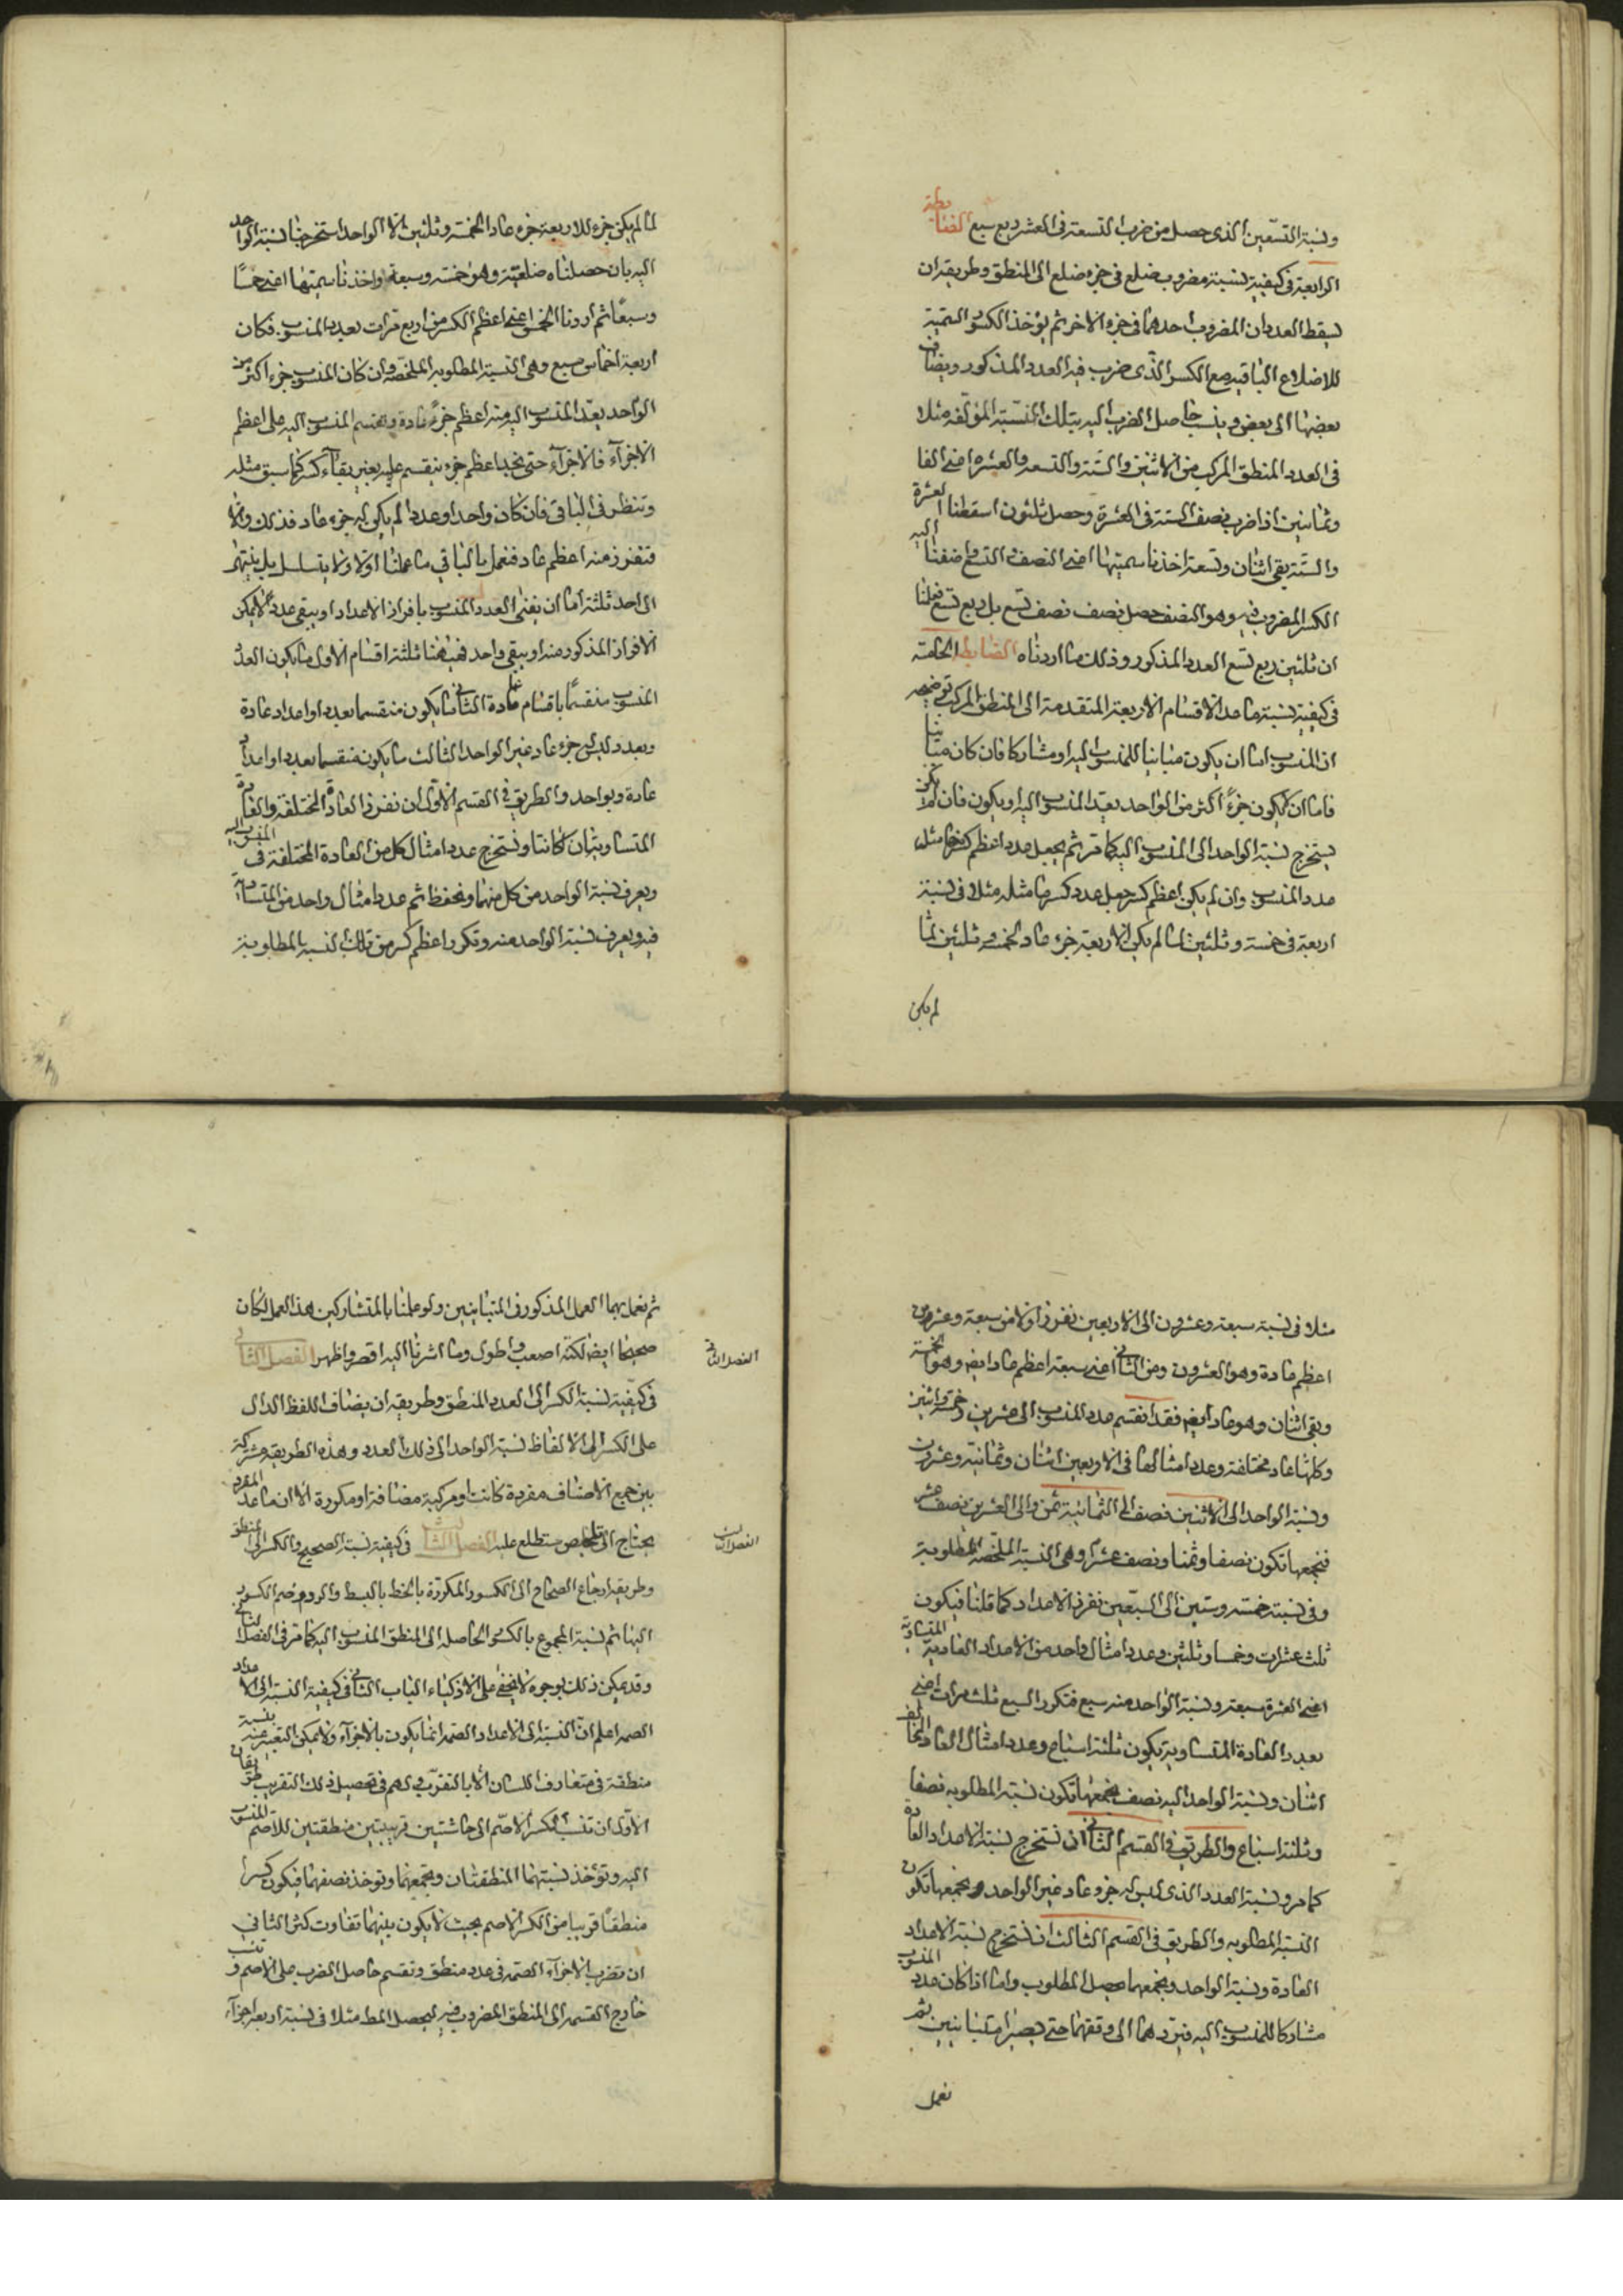 ونسبة التسعين الذى حصل من ضرب التسعة فى العشر ربع سبع الضابطة
الرابعة فى كيفية نسبة مضروب ضلع فى جزء ضلع الى المنطق وطريقه ان
يسقط العددان المضروب احدهما فى جزء الاخر ثم يؤخذ الكسور السمية
للاضلاع الباقيه مع الكسر الذى ضرب فيه العدد المذكور ويضاف
بعضها الى بعض وينسب حاصل الضرب اليه بتلك النسبة المؤلفه مثلا
فى العدد المنطق المركب من الاثنين والستة والتسعه والعشره اعنى الفا
وثمانين اذا ضرب نصف الستة فى العشرة وحصل ثلثون اسقطنا العشرة
والستة بقى اثنان وتسعة اخذنا سميتها اعنى النصف والتسع واضفنا اليه
الكسر المضروب فيه وهو النصف حصل نصف نصف تسع بل ربع تسع فعلنا
ان ثلثين ربع تسع العدد المذكور وذلك ما اردناه الضابطة الخامسة
فى كيفية نسبة ما عدا الاقسام الاربعة المتقدمة الى المنطق المركب توضيحه
ان المنسوب اما ان يكون مباينا للمنسوب اليه او مشاركا فان كان مباينا
فاما ان يكون جزءً اكثر من الواحد يعد المنسوب اليه او يكون فان لم يكن
يستخرج نسبة الواحد الى المنسوب اليه كما مر ثم يجعل عدد اعظم كسرها مثل
عدد المنسوب وان لم يكن اعظم كسر جعل عدد كسرها مثله مثلا فى نسبة
اربعة فى خمسة وثلثين لما لم يكن لاربعة جزء عاد لخمسة وثلثين لما
لم يكن
لما لم يكن جزء للاربعة جزء عاد الخمسة وثلثين الا الواحد استخرجنا نسبة الواحد
اليه بان حصلناه ضلعيه وهو خمسة وسبعة واخذنا سميتها اعنى خمسًا
وسبعًا ثم اردنا الخمس اعنى اعظم الكسر من اربع مرات بعدد المنسوب فكان
اربعة اخماس سبع وهى النسبة المطلوبه الملخصة وان كان المنسوب جزء اكثر من
الواحد يعد المنسوب اليه منه اعظم جزء عادة ويقسم المنسوب اليه على اعظم
الاجزآء فالاجزآء حتى نجد اعظم جزء ينقسم عليه بغير بقآء كسر كما سبق مثله
وتنظر فى الباقى فان كان واحدا وعددا لم يكن له جزء عاد فذلك والا
فنفرز منه اعظم عاد فنعمل بالباقى ما عملنا اولا ولا يتسلسل بل ينتهى
الى احد ثلثة اما ان يفنى العدد المنسوب بافراز الاعداد او يبقى عدد لا يمكن
الافراز المذكور منه او يبقى واحد فههنا ثلثة اقسام الاول ما يكون العدد
المنسوب منقسمًا باقسام عادة الثانى ما يكون منقسما بعدد او اعداد عادة
وبعدد ليس له جزء عاد غير الواحد الثالث ما يكون منقسما بعدد او اعداد
عادة وبواحد والطريق فى القسم الاول ان نفرز العادة المختلفة والعادة
المتساوية ان كانتا ونستخرج عدد امثال كل من العادة المختلفة فى المنسوب اليه
ويعرف نسبة الواحد من كل منهما ونحفظ ثم عدد امثال واحد من المتساوية
فيه ويعرف نسبة الواحد منه وتكرر اعظم كسر من تلك النسبه بالمطلوبة
مثلا فى نسبة سبعة وعشرون الى الاربعين نفرز اولا من سبعة وعشرين
اعظم عادة وهو العشرون ومن الثانى اعنى سبعة اعظم عاد ايض وهو الخمسة
وبقى اثنان وهو عاد ايض فقد انقسم عدد المنسوب الى عشرين وخمسة واثنين
وكلها عاد مختلفة وعدد امثالها فى الاربعين اثنان وثمانية وعشرون
ونسبة الواحد الى الاثنين نصف والى الثمانية ثمن والى العشرين نصف عشر
فنجمعها تكون نصفا وثمنا ونصف عشر وهى النسبة الملخصة المطلوبة
وفى نسبة خمسة وستين الى السبعين نفرز الاعداد كما قلنا فيكون
ثلث عشرات وخمسا وثلثين وعدد امثال واحد من الاعداد العادية المتساوية
اعنى العشرة سبعة ونسبة الواحد منه سبع فتكرر السبع ثلث مرات اعنى
بعدد العادة المتساوية يكون ثلثة اسباع وعدد امثال العاد المخالف
اثنان ونسبة الواحد اليه نصف فجمعها تكون نسبة المطلوبه نصفا
وثلثة اسباع والطريق فى القسم الثانى ان نستخرج نسبة الاعداد العادة
كما مر ونسبة العدد الذى ليس له جزء عاد غير الواحد ونجمعها تكون
النسبة المطلوبه والطريق فى القسم الثالث ان نستخرج نسبة الاعداد
العادة ونسبة الواحد ونجمعهما يحصل المطلوب واما اذا كان عدد المنسوب
مشاركا للمنسوب اليه فنردهما الى وفقهما حتى يصيرا متباينين ثم
نعمل
ثم نعمل بهما العمل المذكور فى المتباينين ولو عملنا بالمتشاركين هذا العمل لكان
صحيحا ايضا لكنه اصعب واطول وما اشرنا اليه اقصر واظهر الفصل الثانى
الفصل الثانى
فى كيفية نسبة الكسر الى العدد المنطق وطريقه ان يضاف اللفظ الدال
على الكسر الى الالفاظ نسبة الواحد الى ذلك العدد وهذه الطريقه مشتركة
بين جميع الاصناف مفردة كانت او مركبة مضافة او مكررة الا ان ما عدا المفرد
يحتاج الى تلخيص ستطلع عليه الفصل الثالث فى كيفية نسبة الصحيح والكسر الى المنطق
الفصل الثالث
وطريقه ارجاع الصحاح الى الكسور المكررة بالخط بالبسط والرد وضم الكسور
اليها ثم نسبة المجموع بالكسور الحاصله الى المنطق المنسوب اليه كما مر فى الفصل الثانى
وقد يمكن ذلك بوجوه لا يخفى على الاذكياء الباب الثانى فى كيفية النسبة الى الاعداد
الصم اعلم ان النسبة الى الاعداد الصم انما يكون بالاجزآء ولا يمكن التعبير عنه بنسبة
منطقة فى متعارف اللسان الا بالتقريب ولهم فى تحصيل ذلك التقريب طريقان
الاول ان تنسب الكسر الاصم الى حاشيتين قريبتين منطقتين للاصم المنسوب
اليه وتؤخذ نسبتهما المنطقتان ونجمعهما وتوخذ نصفهما فيكون كسرا
منطقًا قريبا من الكسر الاصم بحيث لا يكون بينهما تفاوت كثير الثانى
ان تضرب الاجزآء الصمه فى عدد منطق وتقسم حاصل الضرب على الاصم وتنسب
خارج القسمه الى المنطق المضروب فيه ليحصل المط مثلا فى نسبة اربعة اجزآء